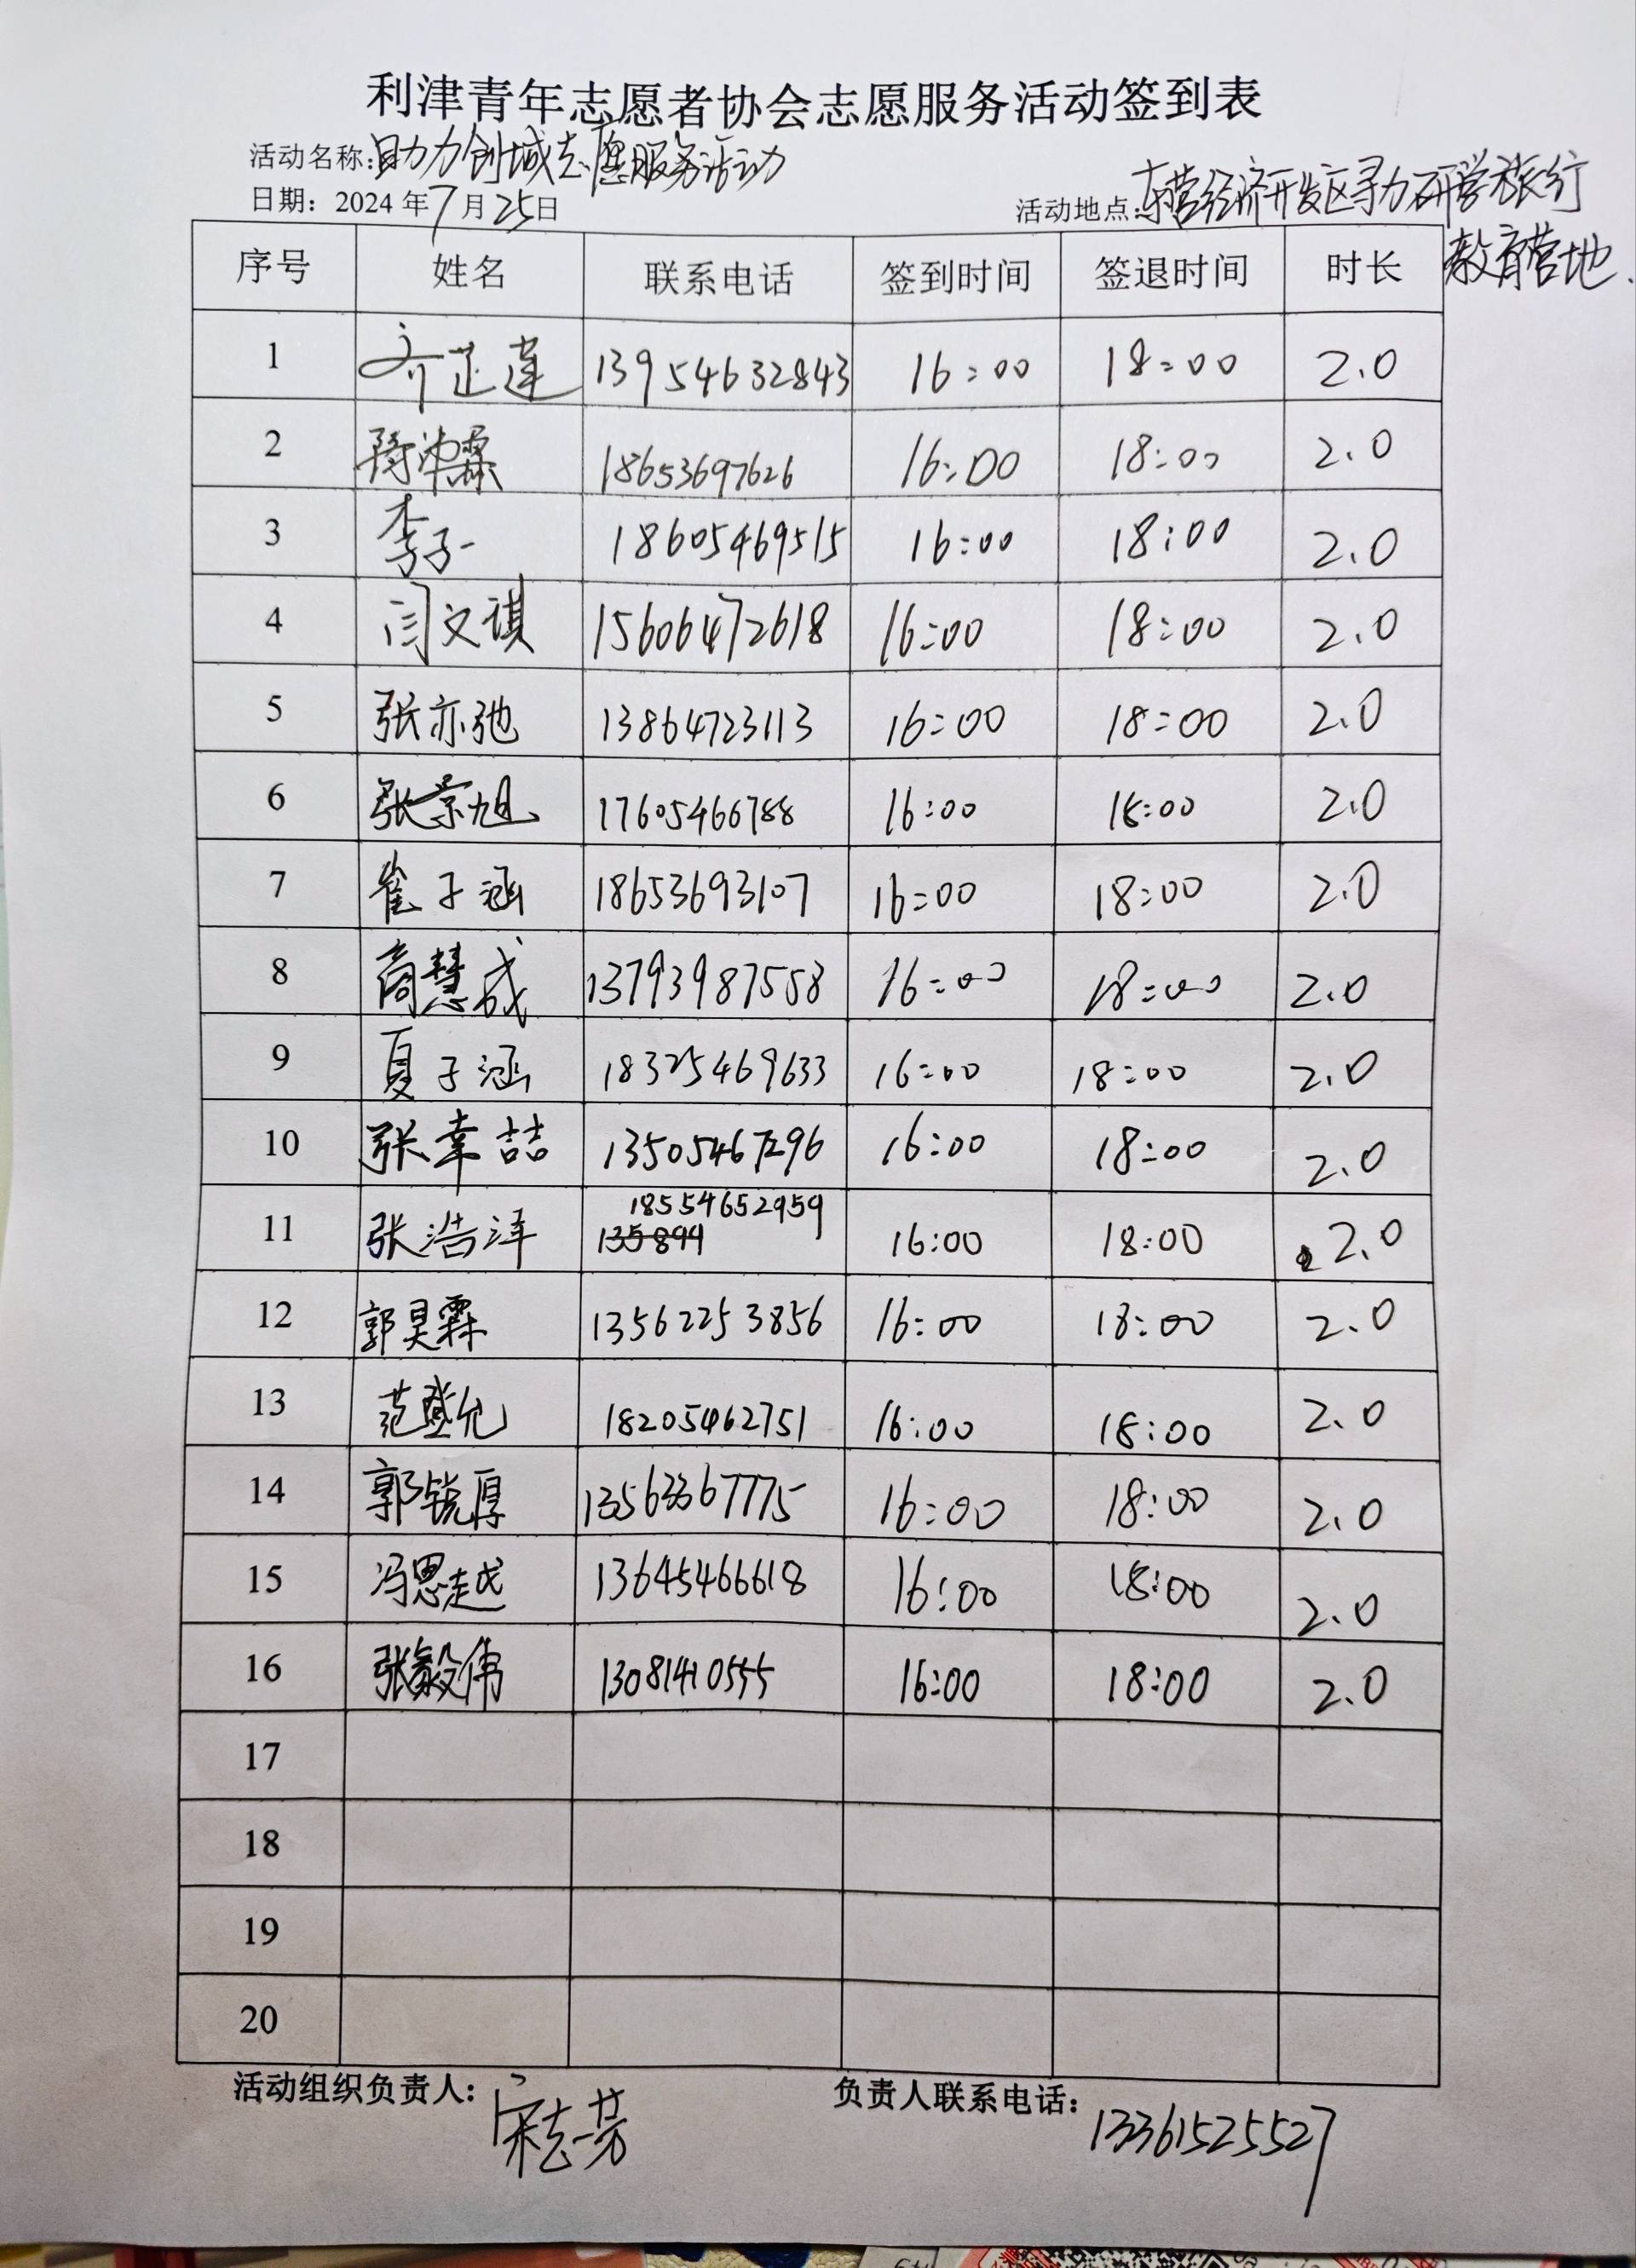 利津青年志愿者协会志愿服务活动签到表
活动名称:助力创城志愿服务活动
日期：2024年7月25日 活动地点:东营经济开发区寻力研学旅行
教育营地.
序号 姓名 联系电话 签到时间 签退时间 时长
1 齐芷莲 13954632843 16:00 18:00 2.0
2 18653697626 16:00 18:00 2.0
3 李子一 18605469515 16:00 18:00 2.0
4 闫文祺 15606472618 16:00 18:00 2.0
5 张亦弛 13864723113 16:00 18:00 2.0
6 张景旭 17605466788 16:00 18:00 2.0
7 崔子涵 18653693107 16:00 18:00 2.0
8 商慧成 13793987558 16:00 18:00 2.0
9 夏子涵 18325469633 16:00 18:00 2.0
10 张幸喆 13505467296 16:00 18:00 2.0
11 张浩洋 18554652959 16:00 18:00 2.0
135894
12 郭昊霖 13562253856 16:00 18:00 2.0
13 范登允 18205462751 16:00 18:00 2.0
14 郭锐厚 13563367775 16:00 18:00 2.0
15 冯思越 13645466618 16:00 18:00 2.0
16 张毅伟 13081410555 16:00 18:00 2.0
17
18
19
20
活动组织负责人：宋志芳 负责人联系电话：13361525527